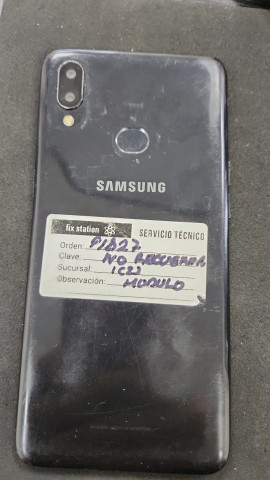 SAMSUNG
fix station SERVICIO TECNICO
Orden: P1827
Clave: NO RECUERDA
Sucursal: 1C2J
Observación: MODULO